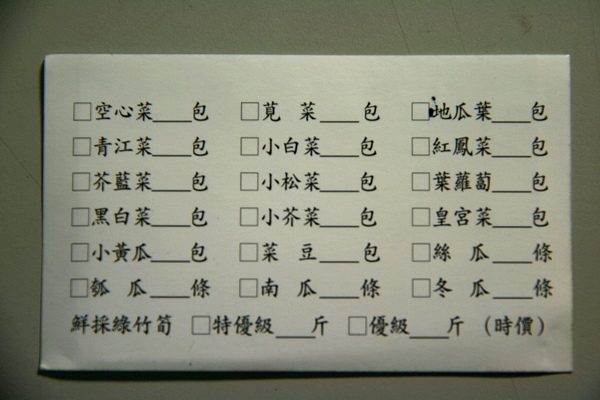 □空心菜___包 □莧 菜___包 □地瓜葉___包
□青江菜___包 □小白菜___包 □紅鳳菜___包
□芥藍菜___包 □小松菜___包 □葉蘿蔔___包
□黑白菜___包 □小芥菜___包 □皇宮菜___包
□小黃瓜___包 □菜 豆___包 □絲 瓜___條
□瓠 瓜___條 □南 瓜___條 □冬 瓜___條
鮮採綠竹筍 □特優級___斤 □優級___斤 （時價）